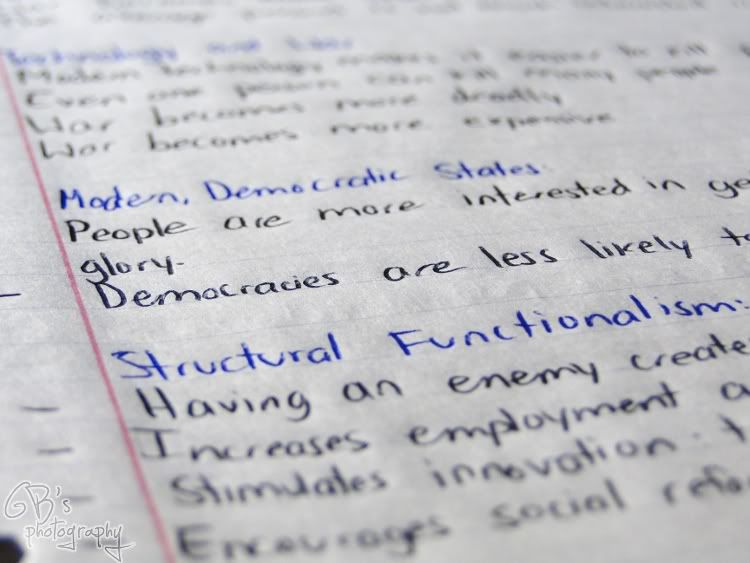 Technology and War
Modern technology makes it easier to kill
Even one person can kill many people
War becomes more deadly
War becomes more expensive
Modern, Democratic States:
People are more interested in ge
glory.
- Democracies are less likely to
Structural Functionalism:
- Having an enemy create
- Increases employment a
- Stimulates innovation. t
Encourages social refo
GB's
photography